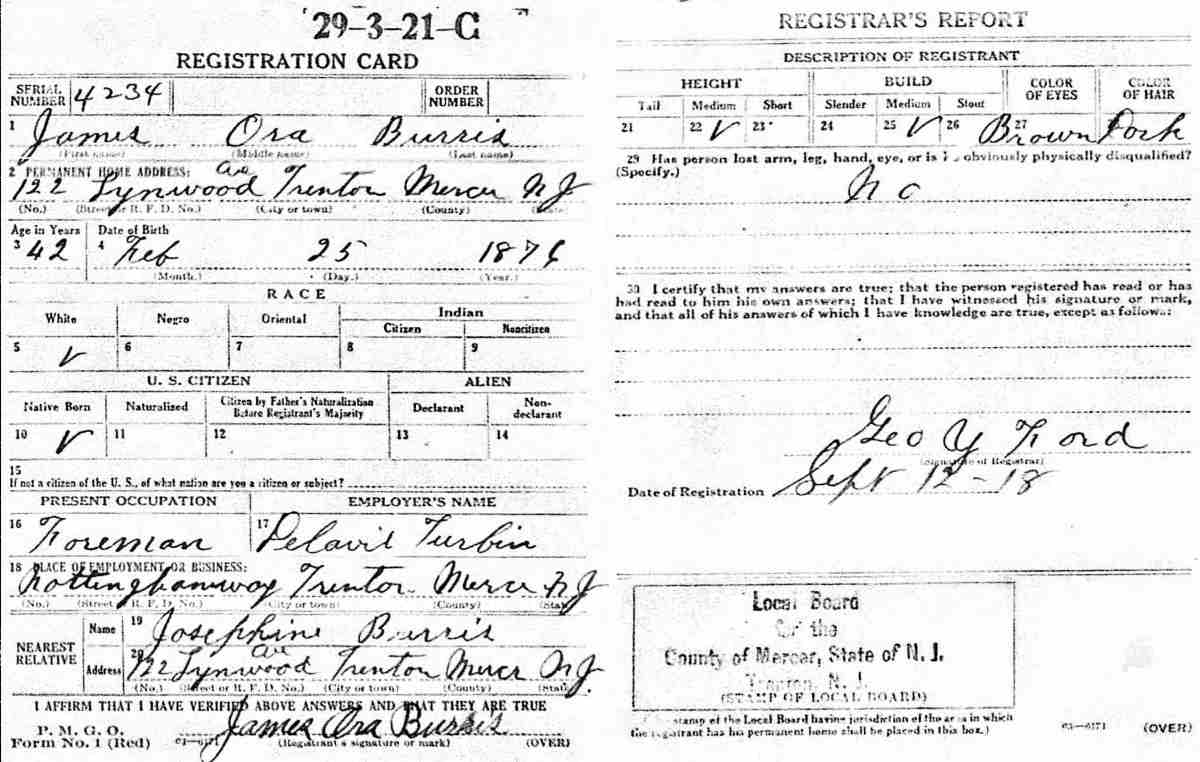 29-3-21-C
REGISTRATION CARD
SERIAL NUMBER 4234 ORDER NUMBER
1 James Ora Burris
(First name) (Middle name) (Last name)
2 PERMANENT HOME ADDRESS:
122 Lynwood Ave Trenton Mercer N J
(No.) (Street or R. F. D. No.) (City or town) (County) (State)
Age in Years Date of Birth
3 42 4 Feb 25 1876
(Month.) (Day.) (Year.)
RACE
White Negro Oriental Indian
Citizen Noncitizen
5 V 6 7 8 9
U. S. CITIZEN ALIEN
Native Born Naturalized Citizen by Father's Naturalization Before Registrant's Majority Declarant Non-declarant
10 V 11 12 13 14
15
If not a citizen of the U. S., of what nation are you a citizen or subject?
PRESENT OCCUPATION EMPLOYER'S NAME
16 Foreman 17 Delavil Turbin
18 PLACE OF EMPLOYMENT OR BUSINESS:
Nottinghamway Trenton Mercer N J
(No.) (Street or R. F. D. No.) (City or town) (County) (State)
NEAREST RELATIVE
Name 19 Josephine Burris
Address 20 122 Lynwood Ave Trenton Mercer N J.
(No.) (Street or R. F. D. No.) (City or town) (County) (State)
I AFFIRM THAT I HAVE VERIFIED ABOVE ANSWERS AND THAT THEY ARE TRUE
P. M. G. O.
Form No. 1 (Red) 03-6171 James Ora Burris
(Registrant's signature or mark) (OVER)
REGISTRAR'S REPORT
DESCRIPTION OF REGISTRANT
HEIGHT BUILD COLOR OF EYES COLOR OF HAIR
Tall Medium Short Slender Medium Stout
21 22 V 23 24 25 V 26 27 Brown Dark
29 Has person lost arm, leg, hand, eye, or is he obviously physically disqualified?
(Specify.)
No
30 I certify that my answers are true; that the person registered has read or has
had read to him his own answers; that I have witnessed his signature or mark,
and that all of his answers of which I have knowledge are true, except as follows:
Geo Y Ford
(Signature of Registrar)
Date of Registration Sept 12-18
Local Board
for the
County of Mercer, State of N. J.
Trenton, N. J.
(STAMP OF LOCAL BOARD)
stamp of the Local Board having jurisdiction of the area in which
the registrant has his permanent home shall be placed in this box.)
03-6171 (OVER)